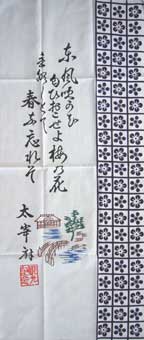 東風吹かば
匂ひおこせよ梅乃花
主なしとて
春な忘れそ
太宰府